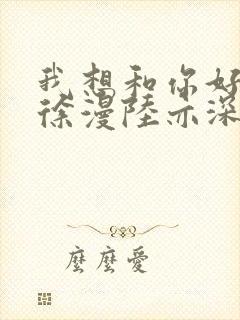 我想和你好
徐漫陸亦深
麼麼愛